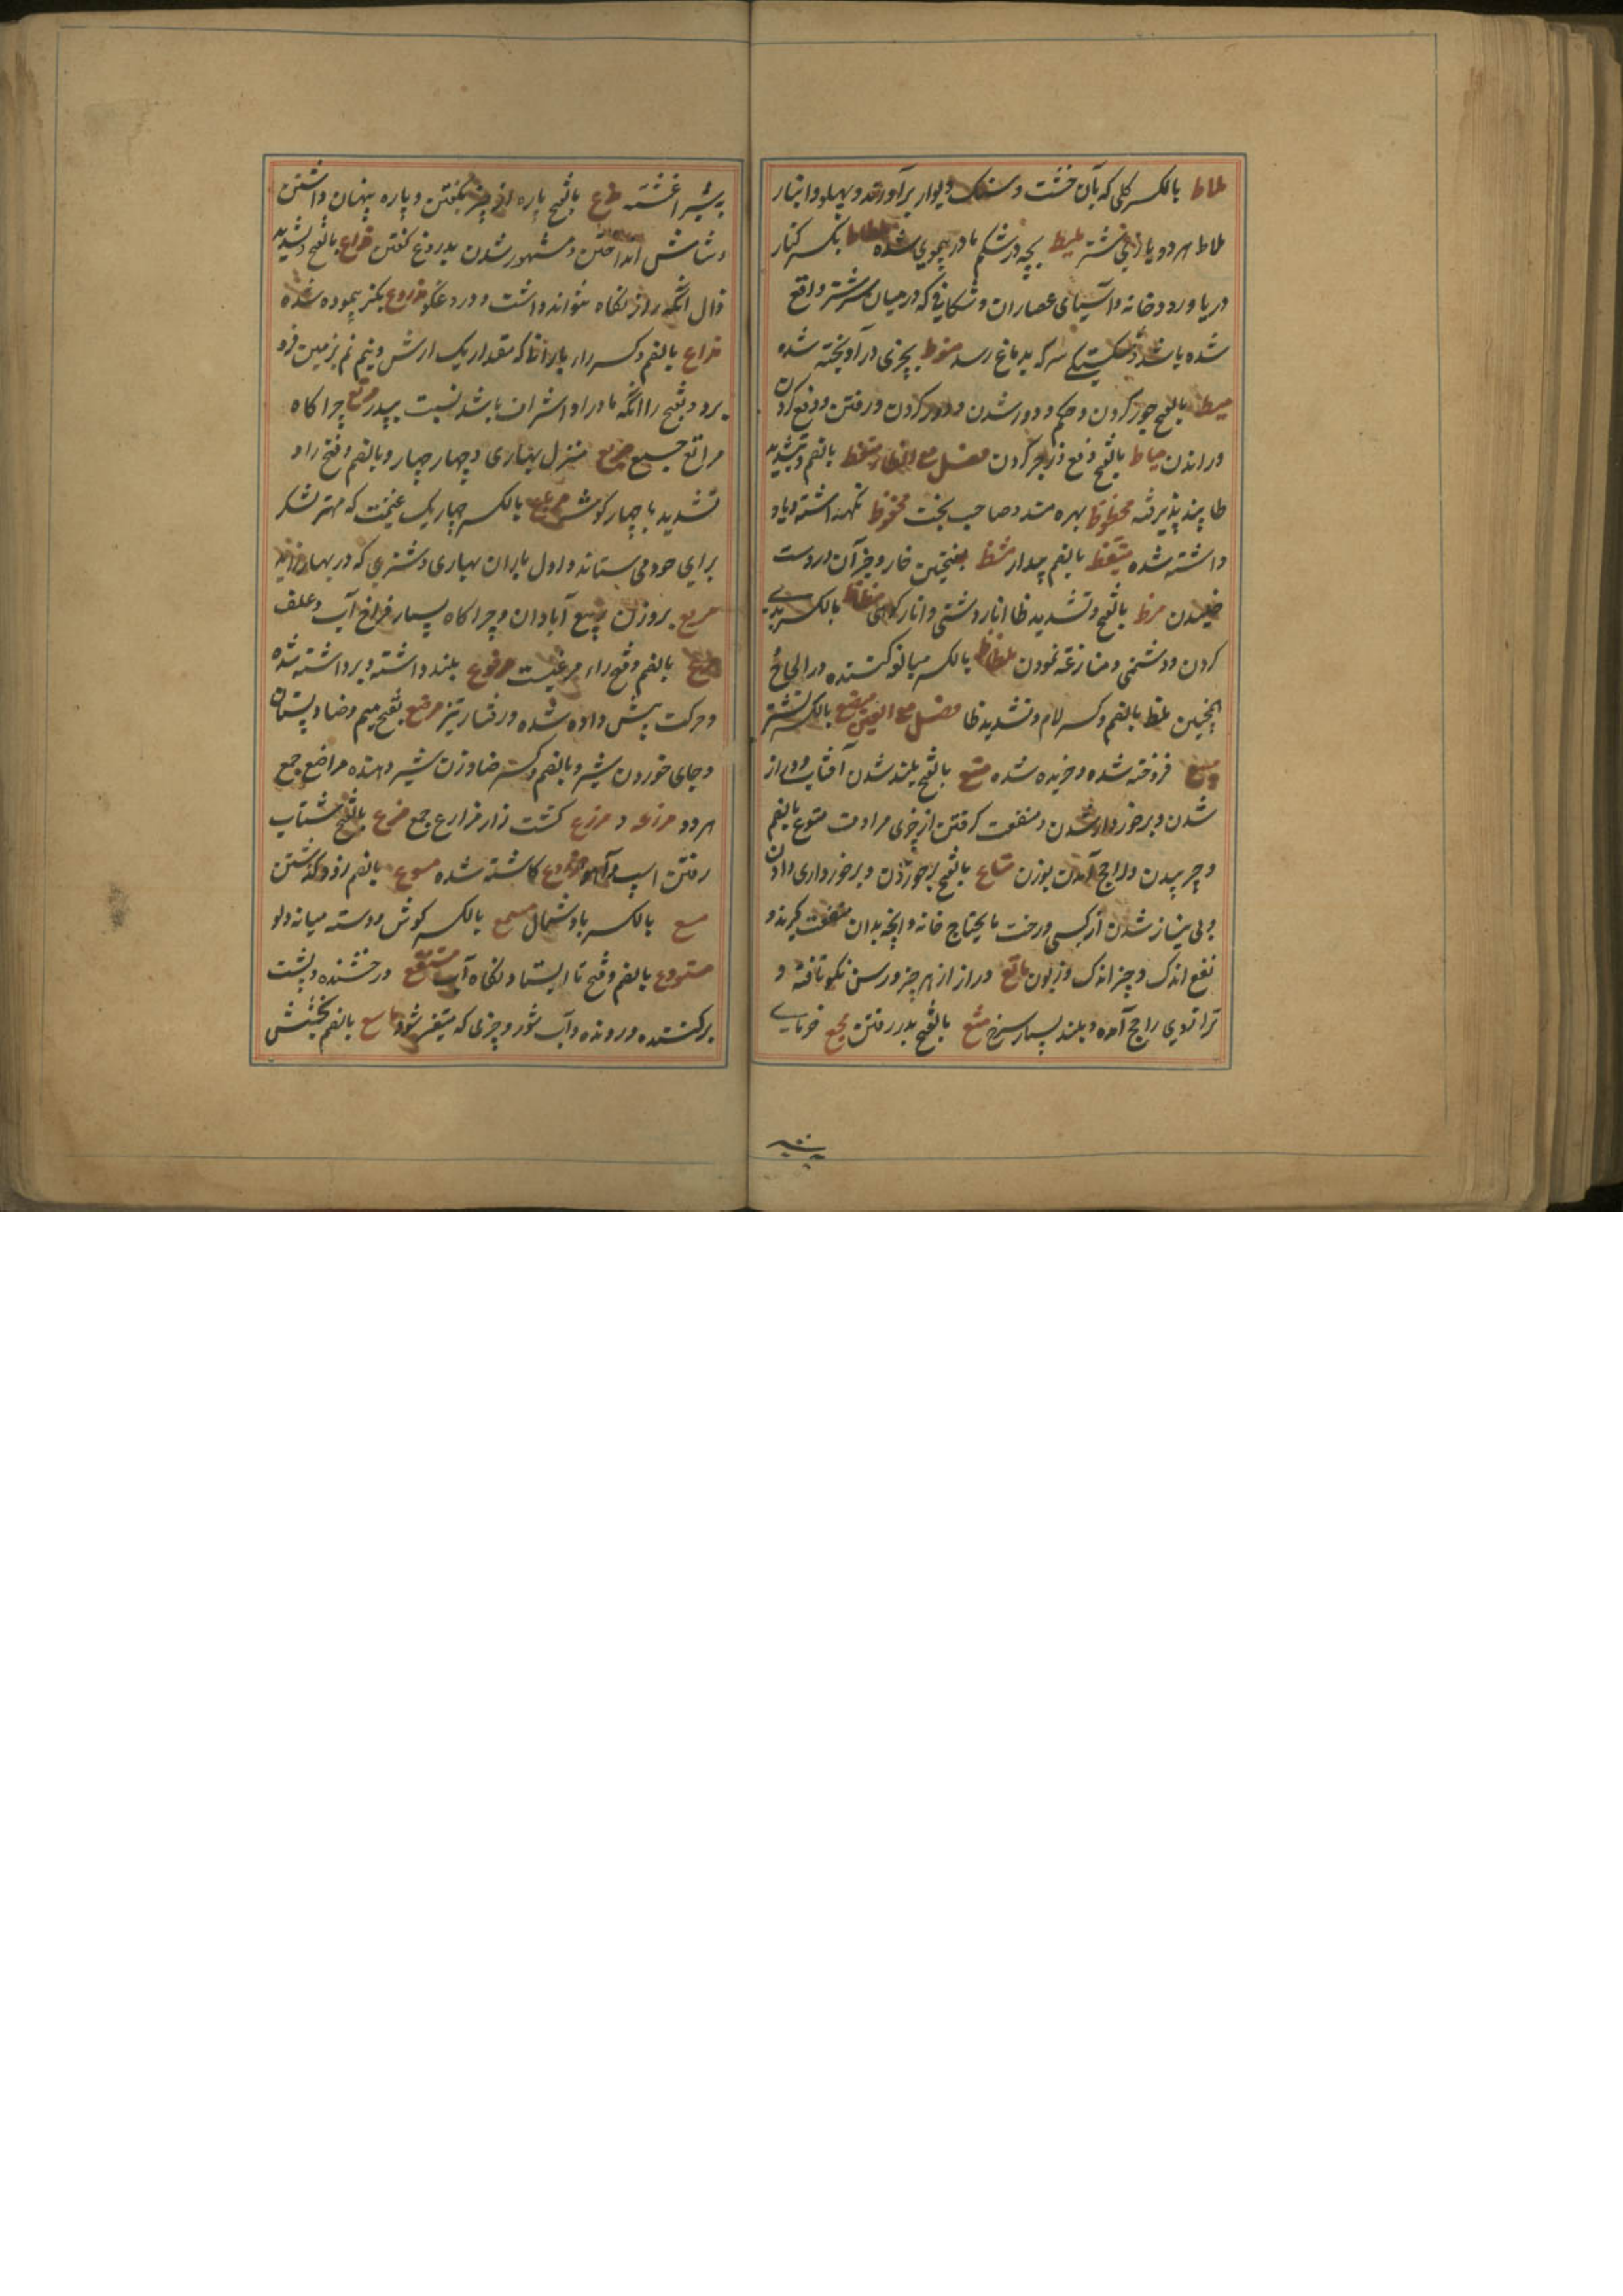 ملاط بالکسر کلی که بآن خشت و سنک دیوار برآورند و پهلو و ابنا ر
ملاط هر دو بازوی شتر ملیط بچه در شکم مادر پیموی شده ملطاط بکسر کنار
دریا و رودخانه و آسیای عصاران و شکافی که در میان سر شتر واقع
شده باشد و شکستکی سر که بدماغ رسد منوط بچیزی در آویخته شده
میط بالفتح جور کردن و حکم و دور شدن و دور کردن و رفتن و دفع کردن
و راندن میاط بالفتح دفع و زجر کردن فصل مع الظاء متعظ بالضم و تشدید
طا پند پذیرفته محظوظ بهره مند و صاحب بخت محفوظ نکهداشته و یاد
داشته شده متیقظ بالضم بیدار مشظ بفتحتین خار و جز آن در دست
خلیدن مظ بالفتح و تشدید ظا انار دشتی و انار کوهی مظاظ بالکسر بدی
کردن و دشمنی و منازعه نمودن ملظاظ بالکسر مبالغه کننده در الحاح
همچنین ملظ بالضم و کسر لام و تشدید ظا فصل مع العین مبضع بالکسر نشتر
مبیع فروخته شده و خریده شده متع بالفتح بلند شدن آفتاب و دراز
شدن و برخوردار شدن و منفعت کرفتن از چیزی مرادف متوع بالضم
و چرپیدن و راجح آمدن بوزن متاع بالفتح برخوردن و برخورداری دادن
و بی نیاز شدن از کسی و رخت ما یحتاج خانه و آنچه بدان منفعت کیرند و
نفع اندک و چیز اندک و زبون ماتع دراز از هر چیز و رسن نیکو تافته و
ترازوی راجح آمده و بلند بسیار سرخ مثع بالفتح بدر رفتن مجع خرمای
بشیر آغشته مذع بالفتح پاره از چیز بکفتن و پاره پنهان داشتن
و شاشش انداختن و مشهور شدن بدروغ کفتن مذاع بالفتح و تشدید
ذال آنکه راز نکاه نتواند داشت و دروغکو مذروع بکز پیموده شده
مذراع بالضم و کسر راء بارانی که مقدار یک ارش و نیم نم بزمین فرو
برود و بفتح را آنکه مادر او اشراف باشد نسبت بپدر مرتع چراکاه
مراتع جمع مربع منزل بهاری و چهار چهار و بالضم و فتح را و
تشدید با چهار کوشه مرباع بالکسر چهار یک غنیمت که مهتر لشکر
برای خود می ستاند و اول باران بهاری و شتری که در بهار زاید
مریع بروزن ربیع آبادان و چراکاه بسیار فراخ آب و علف
مرع بالضم و فتح راء مرغیست مرفوع بلند داشته و برداشته شده
و حرکت پیش داده شده و رفتار تیز مرضع بفتح میم و ضاد پستان
و جای خوردن شیر و بالضم و کسر ضاد زن شیر دهنده مراضع جمع
هر دو مزرعه و مزرع کشت زار مزارع جمع مزع بالفتح شتاب
رفتن اسپ و آهو مزروع کاشته شده مسوع بالضم زود کذشتن
مسع بالکسر باد شمال مسمع بالکسر کوش و دسته میانه دلو
مستودع بالضم و فتح تا ایستاد نکاه آب مستنقع درخشنده و پشت
برکننده و رونده و آب شور و چیزی که متغیر شود ماسع بالضم بخشش